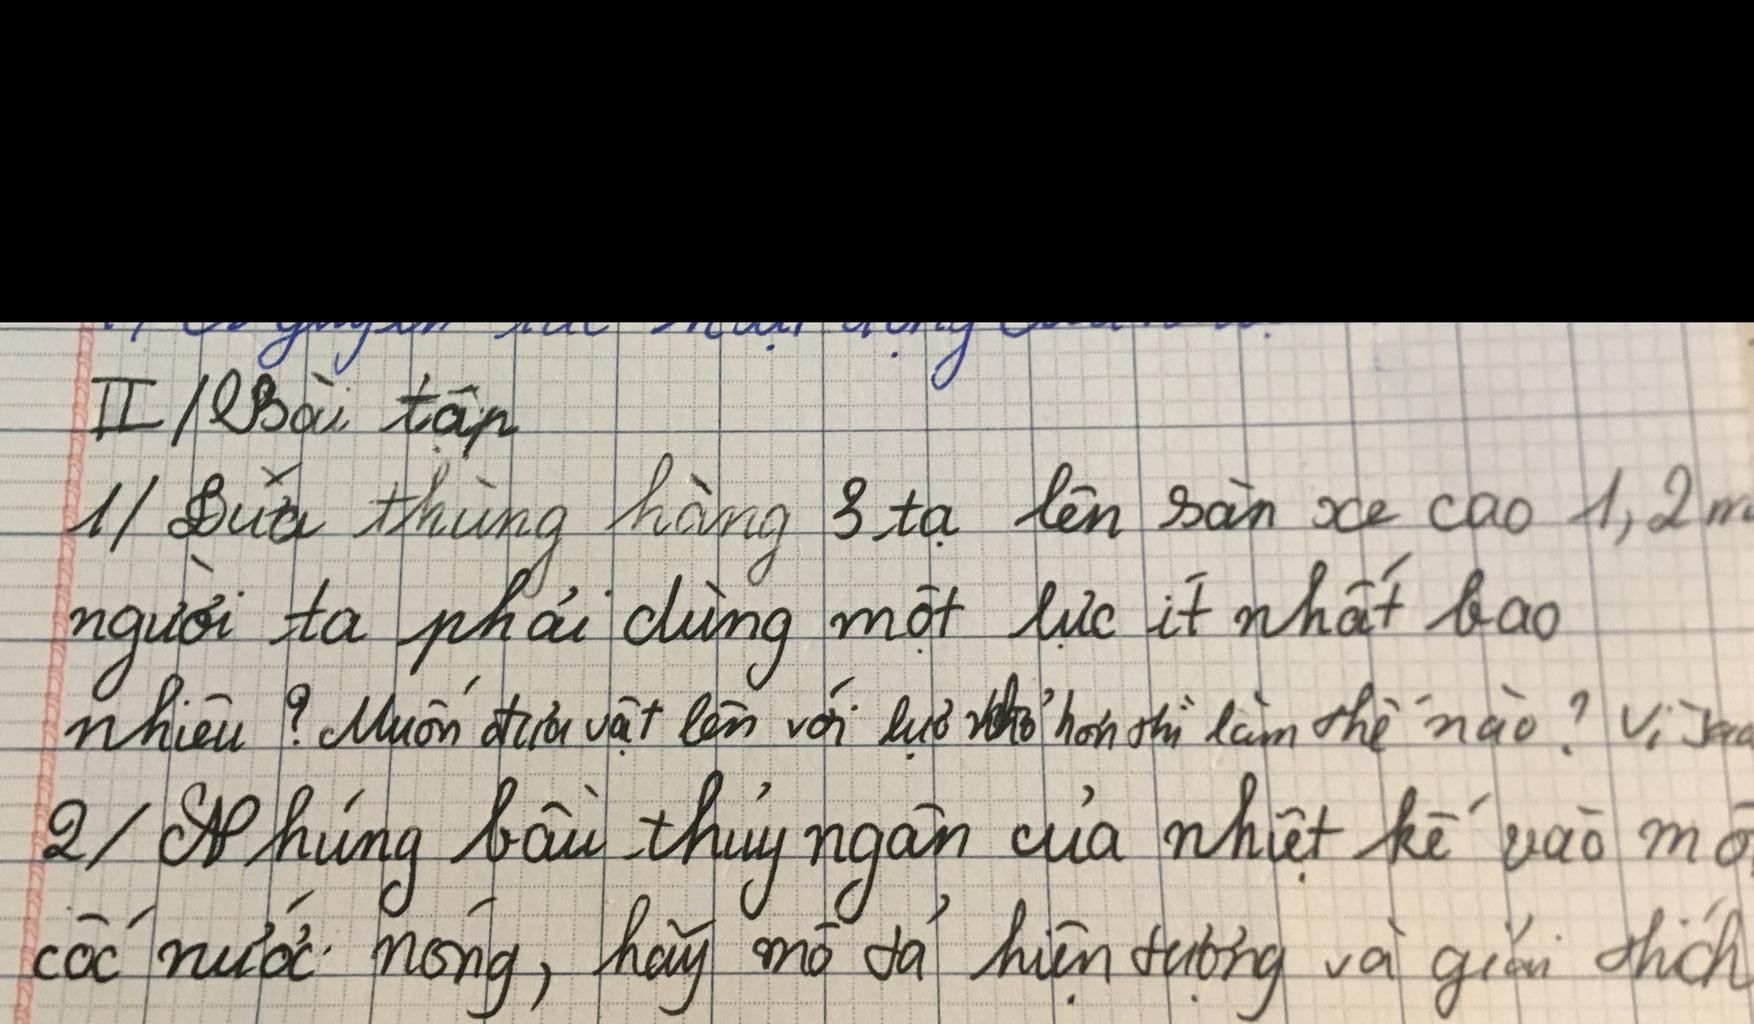 II/ Bài tập
1/ Đưa thùng hàng 3 tạ lên sàn xe cao 1,2m
người ta phải dùng một lực ít nhất bao
nhiêu? Muốn đưa vật lên với lực nhỏ hơn thì làm thế nào? Vì sao
2/ Nhúng bầu thủy ngân của nhiệt kế vào
cốc nước nóng, hãy mô tả hiện tượng và giải thích